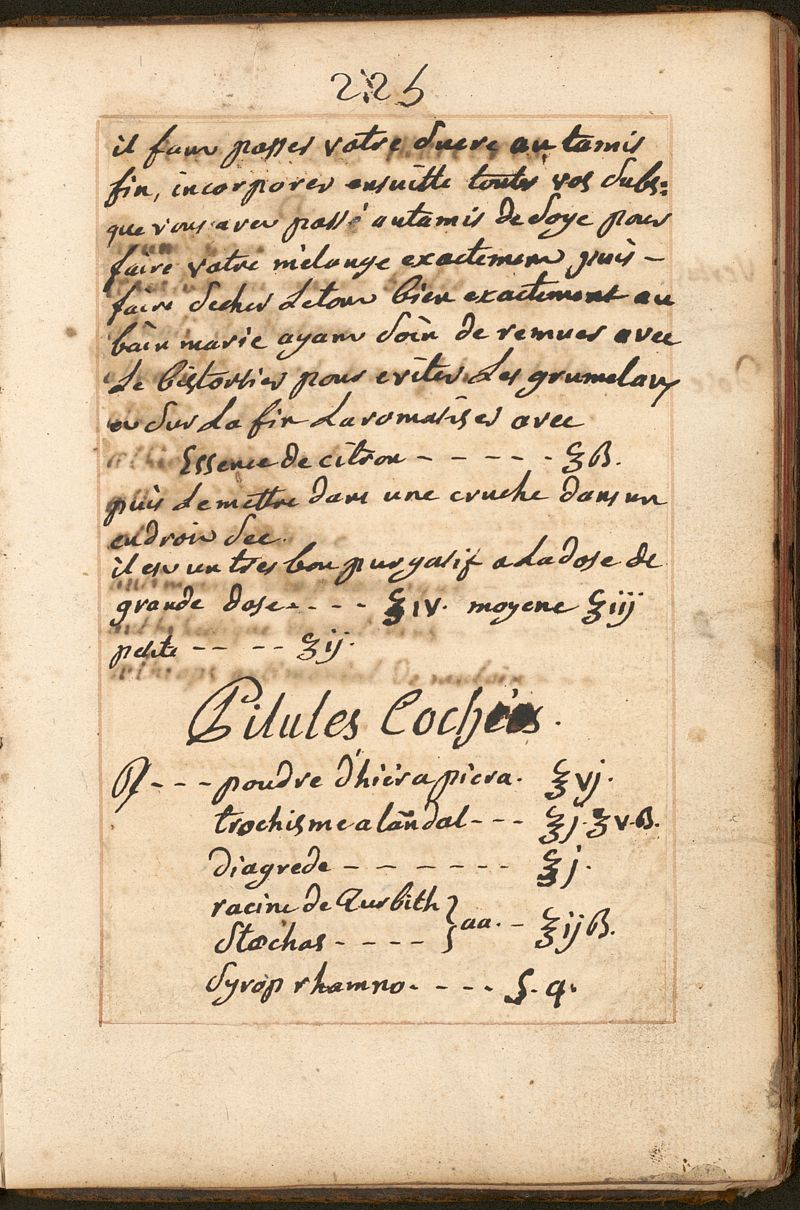 225
il faut passer votre sucre au tamis
fin, incorporer ensuitte touts vos subs=
que vous avez passé au tamis de soye pour
faire votre mélange exactement puis -
faire secher letout bien exactement au
bain marie ayant soin de remuer avec
Le bistortier pour eviter Les grumelaux
et sur La fin L'aromatiser avec
Essence de citron - - - - - ʒß.
puis Le mettre dans une cruche dans un
endroit sec.
il est un tres bon purgatif a La dose de
grande dose. - - - - ʒiv. moyene ʒiij
petite - - - - ʒij.
Pilules Cochées.
℞ - - - poudre d'hiéra picra. ℥vj.
trochisme alandal - - - ℥j. ʒv.ß.
diagrede - - - - - - - ℥j.
racine de Turbith
Stœchas - - - - } aa. - ℥ijß.
Syrop rhamno. - - - - S. q.